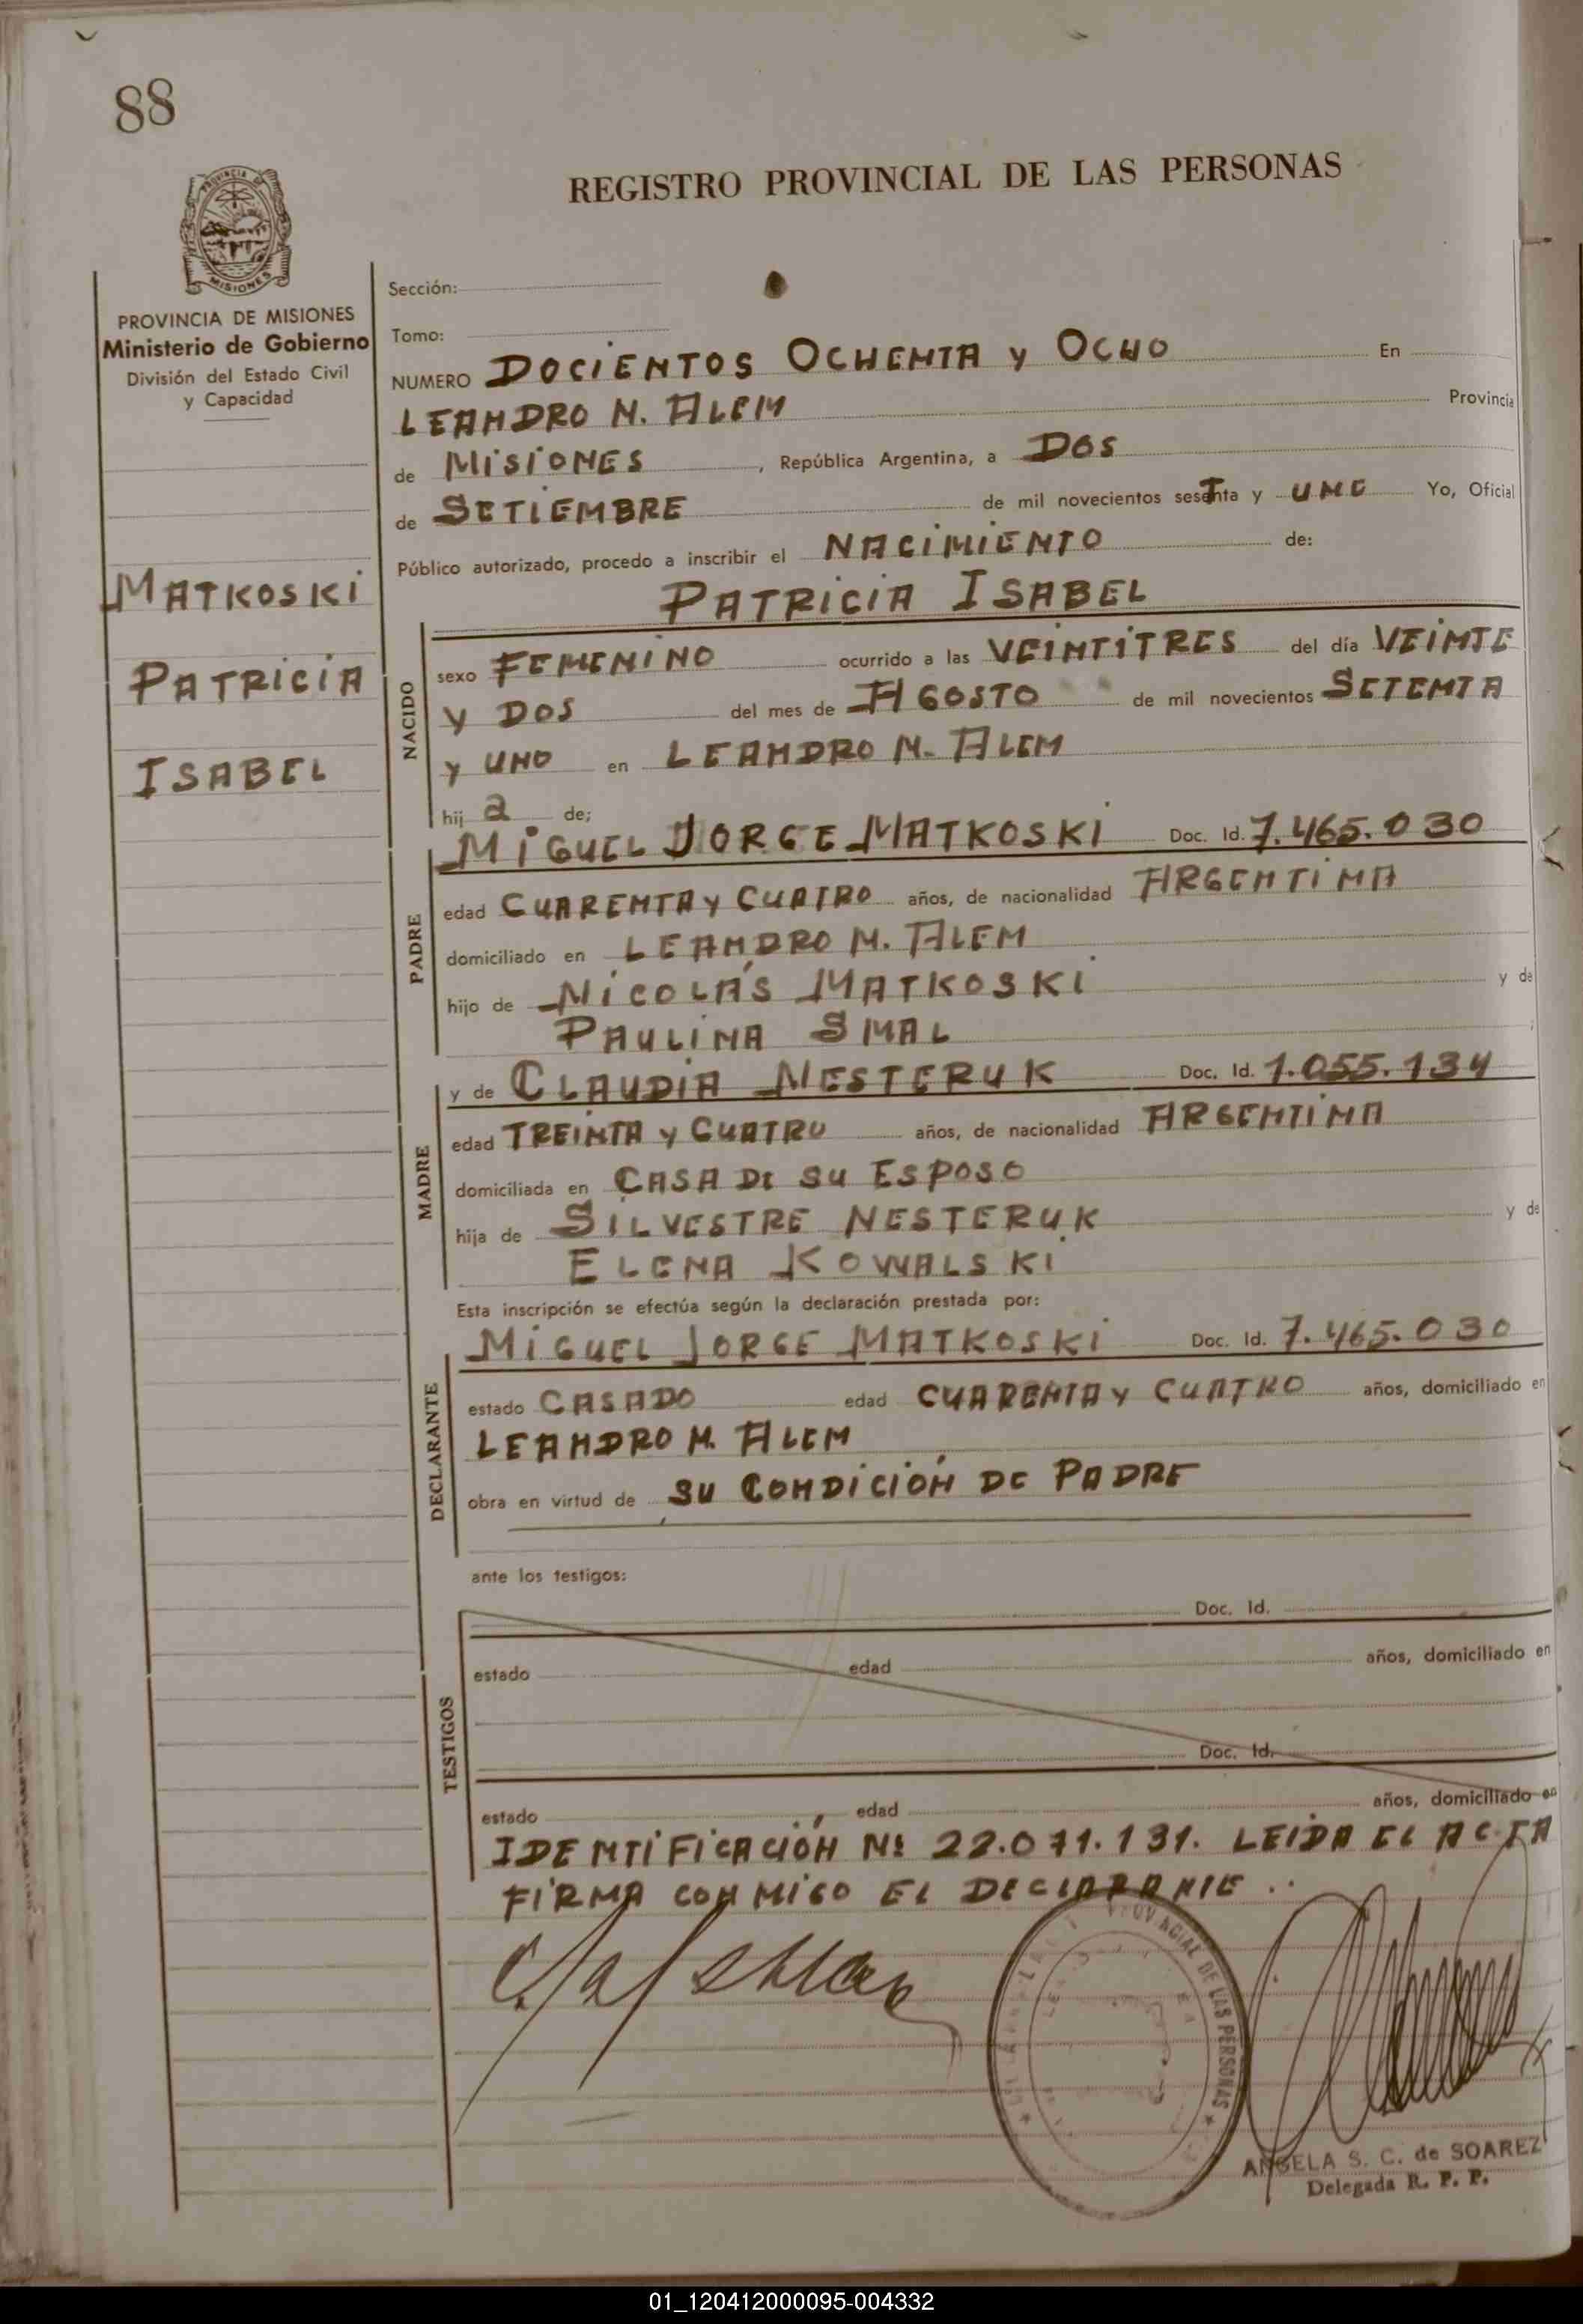 88
REGISTRO PROVINCIAL DE LAS PERSONAS
PROVINCIA DE MISIONES
Ministerio de Gobierno
División del Estado Civil
y Capacidad
MATKOSKI
PATRICIA
ISABEL
Sección:
Tomo:
NUMERO DOCIENTOS OCHENTA y OCHO En
LEANDRO N. ALEM Provincia
de MISIONES, República Argentina, a DOS
de SETIEMBRE de mil novecientos sesTnta y UNO Yo, Oficial
Público autorizado, procedo a inscribir el NACIMIENTO de:
PATRICIA ISABEL
NACIDO
sexo FEMENINO ocurrido a las VEINTITRES del día VEINTE
y DOS del mes de AGOSTO de mil novecientos SETENTA
y UNO en LEANDRO N. ALEM
hij a de;
MIGUEL JORGE MATKOSKI Doc. Id. 7.465.030
PADRE
edad CUARENTA y CUATRO años, de nacionalidad ARGENTINA
domiciliado en LEANDRO N. ALEM
hijo de NICOLÁS MATKOSKI y de
PAULINA SMAL
y de CLAUDIA NESTERUK Doc. Id. 1.055.134
MADRE
edad TREINTA y CUATRO años, de nacionalidad ARGENTINA
domiciliada en CASA DE SU ESPOSO
hija de SILVESTRE NESTERUK y de
ELENA KOWALSKI
Esta inscripción se efectúa según la declaración prestada por:
MIGUEL JORGE MATKOSKI Doc. Id. 7.465.030
DECLARANTE
estado CASADO edad CUARENTA y CUATRO años, domiciliado en
LEANDRO N. ALEM
obra en virtud de SU CONDICIÓN DE PADRE
ante los testigos:
TESTIGOS
Doc. Id.
estado edad años, domiciliado en
Doc. Id.
estado edad años, domiciliado en
IDENTIFICACIÓN Nº 22.071.131. LEIDA EL ACTA
FIRMA CONMIGO EL DECLARANTE..
DE LAS PERSONAS
ANGELA S. C. de SOAREZ
Delegada R. P. P.
01_120412000095-004332